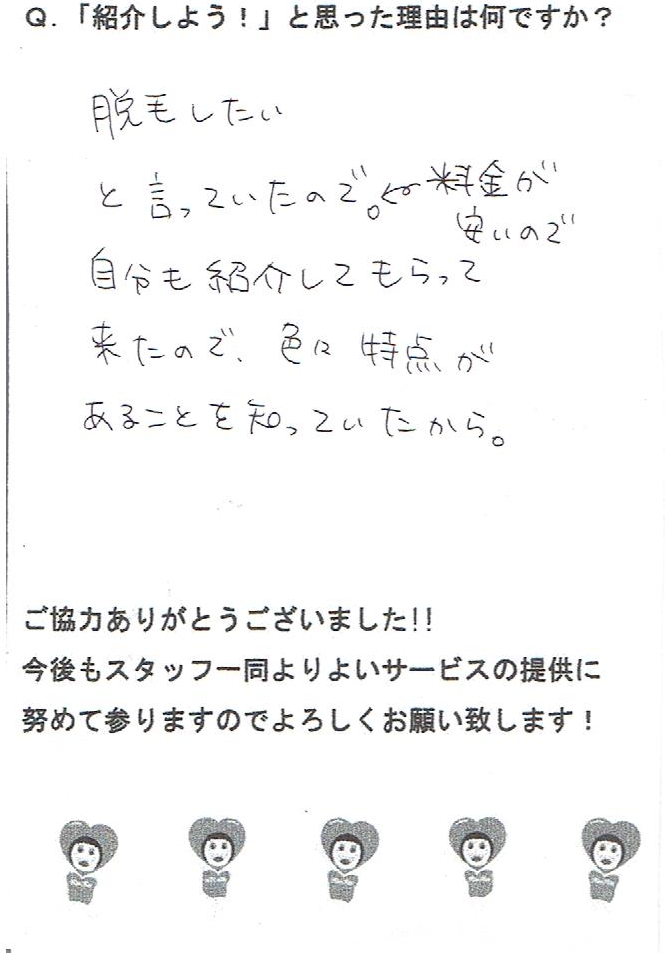 Q.「紹介しよう！」と思った理由は何ですか？
脱毛したい
と言っていたので。← 料金が
安いので
自分も紹介してもらって
来たので、色に特点が
あることを知っていたから。
ご協力ありがとうございました!!
今後もスタッフ一同よりよいサービスの提供に
努めて参りますのでよろしくお願い致します！